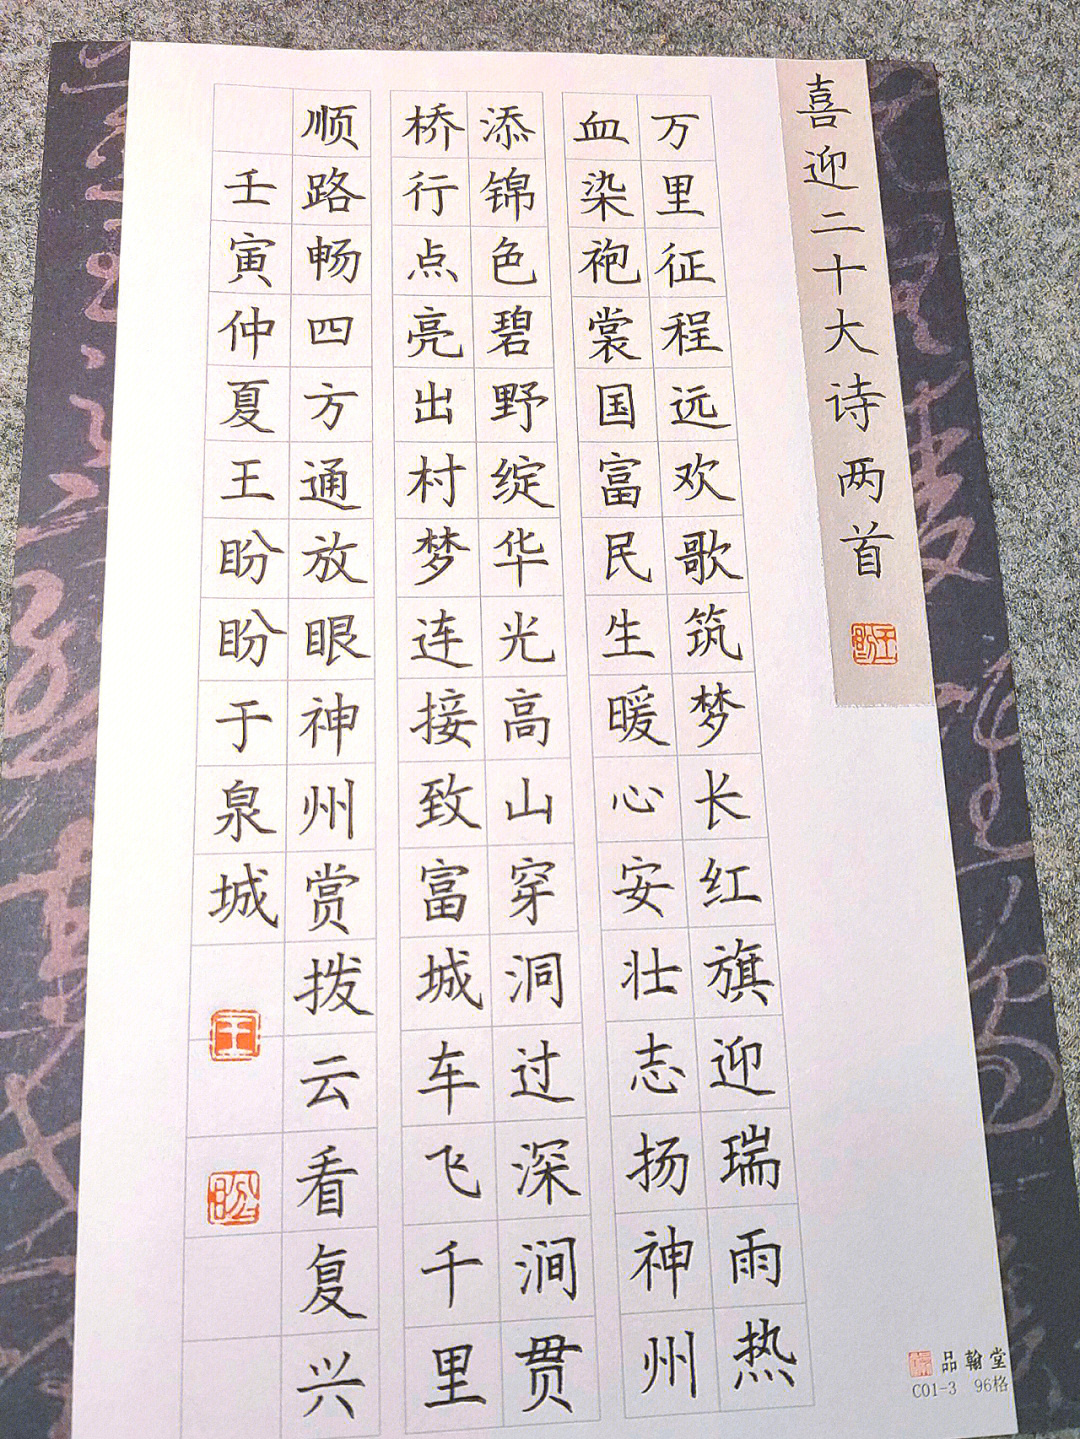 喜迎二十大诗两首
王盼
万里征程远欢歌筑梦长红旗迎瑞雨热
血染袍裳国富民生暖心安壮志扬神州
添锦色碧野绽华光高山穿洞过深涧贯
桥行点亮出村梦连接致富城车飞千里
顺路畅四方通放眼神州赏拨云看复兴
壬寅仲夏王盼盼于泉城
王
盼
品翰堂
C01-3 96格